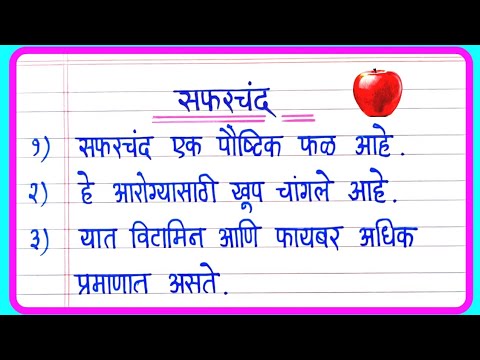 सफरचंद
१) सफरचंद एक पौष्टिक फळ आहे.
२) हे आरोग्यासाठी खूप चांगले आहे.
३) यात विटामिन आणि फायबर अधिक
प्रमाणात असते.